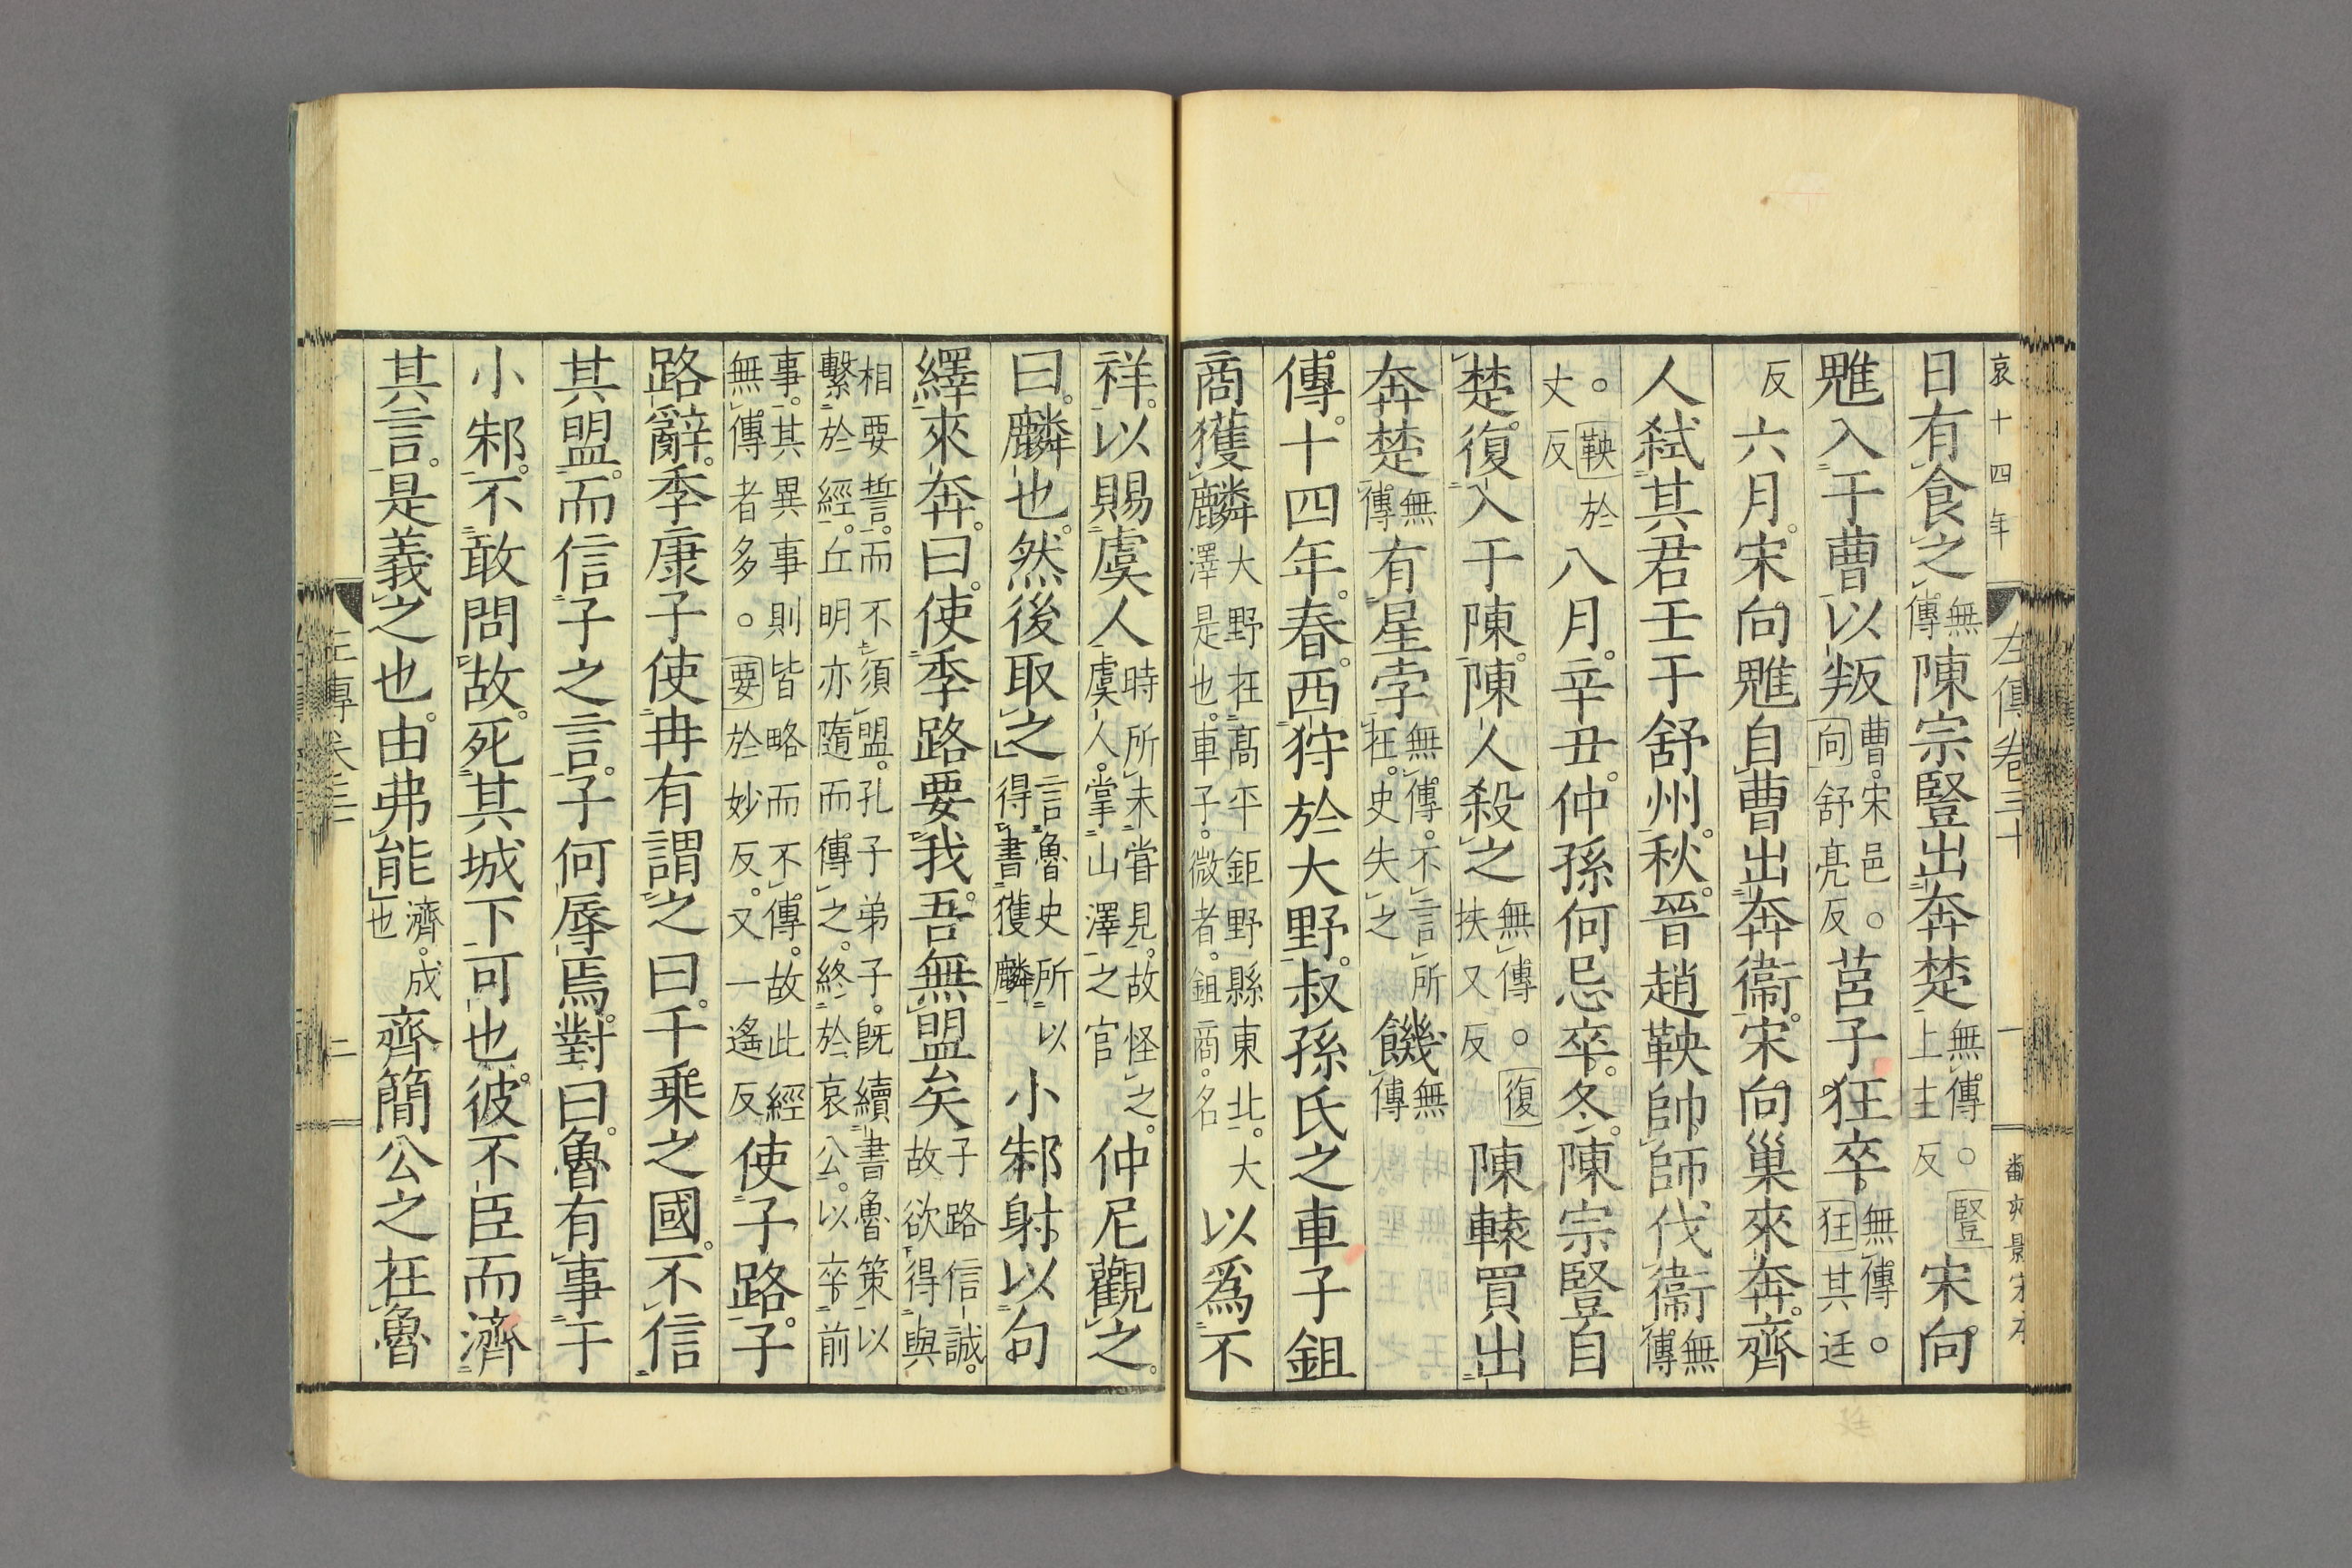 哀十四年　左傳卷三十　一
日有食之無傳陳宗豎出奔楚無傳○豎上主反宋向
魋入于曹以叛曹宋邑○向舒亮反莒子狂卒無傳○狂其廷
反六月宋向魋自曹出奔衞宋向巢來奔齊
人弒其君壬于舒州秋晉趙鞅帥師伐衞無傳
○鞅於丈反八月辛丑仲孫何忌卒冬陳宗豎自
楚復入于陳陳人殺之無傳○復扶又反陳轅買出
奔楚無傳有星孛無傳不言所在史失之饑無傳
傳十四年春西狩於大野叔孫氏之車子鉏
商獲麟大野在高平鉅野縣東北大澤是也車子微者鉏商名以爲不
祥以賜虞人時所未嘗見故怪之虞人掌山澤之官仲尼觀之
曰麟也然後取之言魯史所以得書獲麟小邾射以句
繹來奔曰使季路要我吾無盟矣子路信誠故欲得與
相要誓而不須盟孔子弟子既續書魯策以繫於經丘明亦隨而傳之終於哀公以卒前
事其異事則皆略而不傳故此經無傳者多○要於妙反又一遙反使子路子
路辭季康子使冉有謂之曰千乘之國不信
其盟而信子之言子何辱焉對曰魯有事于
小邾不敢問故死其城下可也彼不臣而濟
其言是義之也由弗能濟成也齊簡公之在魯
二